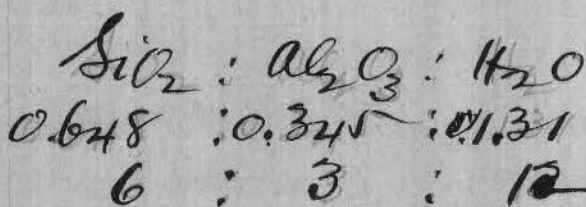 SiO2 : Al2O3 : H2O
0.648 : 0.345 : 1.31
6 : 3 : 12